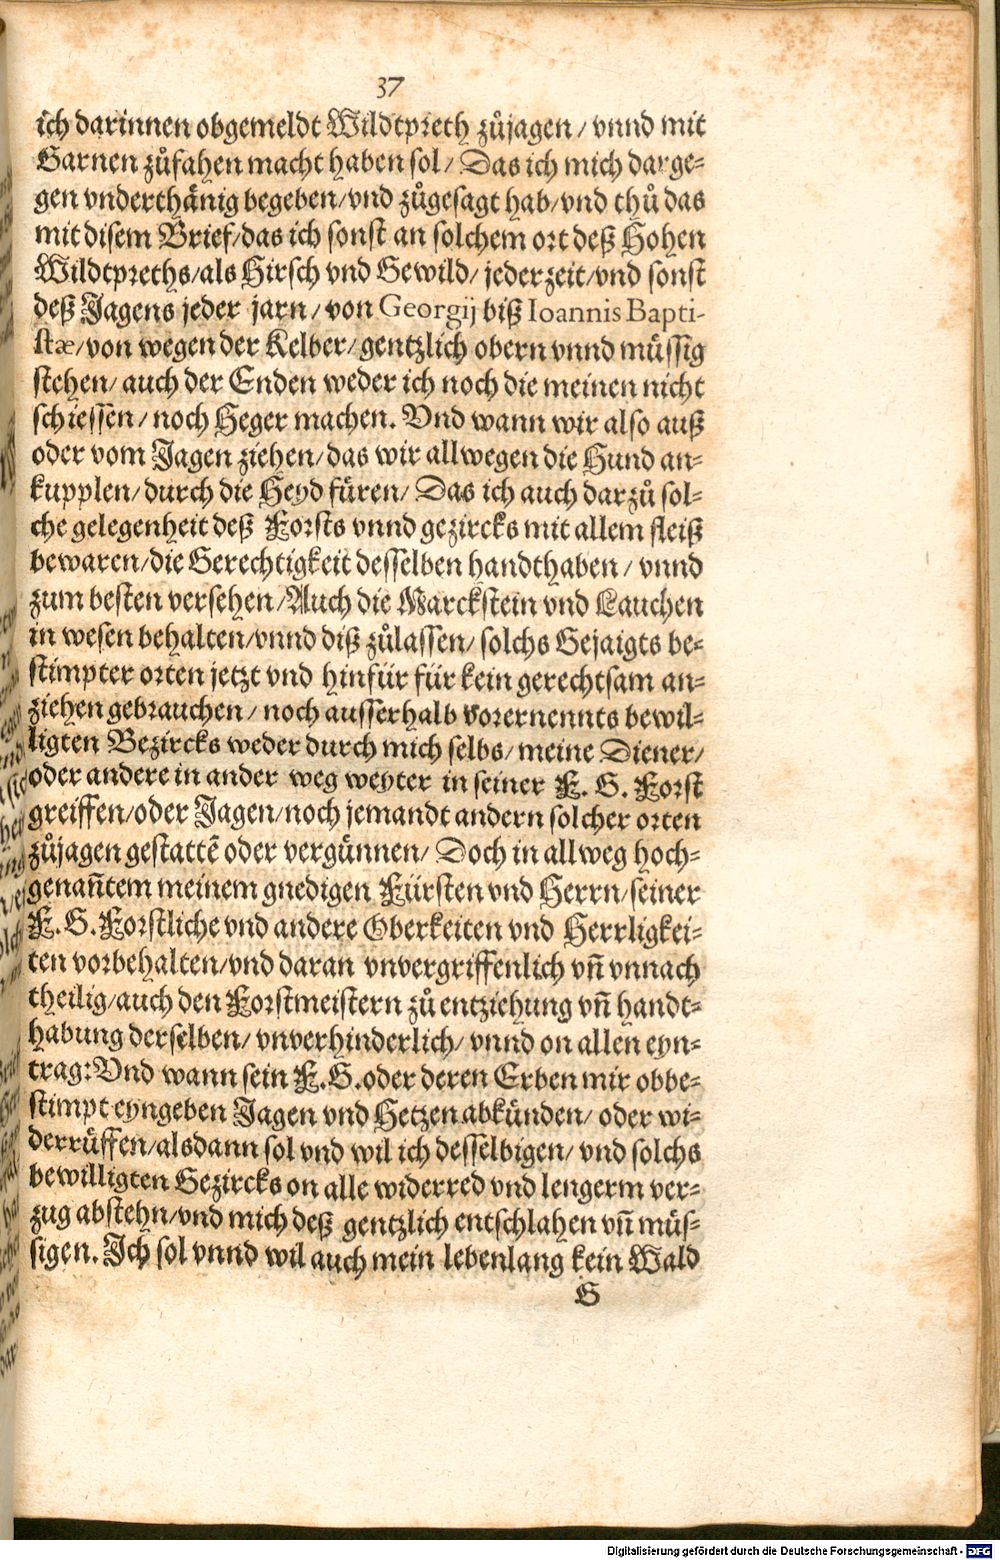 37
ich darinnen obgemeldt Wildtpreth zůjagen / vnnd mit
Garnen zůfahen macht haben sol / Das ich mich darge-
gen vnderthänig begeben / vnd zůgesagt hab / vnd thů das
mit disem Brief / das ich sonst an solchem ort deß Hohen
Wildtpreths / als Hirsch vnd Gewild / jederzeit / vnd sonst
deß Jagens jeder jarn / von Georgij biß Ioannis Bapti-
stæ / von wegen der Kelber / gentzlich obern vnnd müssig
stehen / auch der Enden weder ich noch die meinen nicht
schiessen / noch Heger machen. Vnd wann wir also auß
oder vom Jagen ziehen / das wir allwegen die Hund an-
kupplen / durch die Heyd füren / Das ich auch darzů sol-
che gelegenheit deß Forsts vnnd gezircks mit allem fleiß
bewaren / die Gerechtigkeit desselben handthaben / vnnd
zum besten versehen / Auch die Marckstein vnd Lauchen
in wesen behalten / vnnd diß zůlassen / solchs Gejaigts be-
stimpter orten jetzt vnd hinfür für kein gerechtsam an-
ziehen gebrauchen / noch ausserhalb vorernennts bewil-
ligten Bezircks weder durch mich selbs / meine Diener /
oder andere in ander weg weyter in seiner F. G. Forst
greiffen / oder Jagen / noch jemandt andern solcher orten
zůjagen gestattẽ oder vergünnen / Doch in allweg hoch-
genañtem meinem gnedigen Fürsten vnd Herrn / seiner
F. G. Forstliche vnd andere Oberkeiten vnd Herrligkei-
ten vorbehalten / vnd daran vnvergriffenlich vñ vnnach
theilig / auch den Forstmeistern zů entziehung vñ handt-
habung derselben / vnverhinderlich / vnnd on allen eyn-
trag: Vnd wann sein F. G. oder deren Erben mir obbe-
stimpt eyngeben Jagen vnd Hetzen abkünden / oder wi-
derrüffen / alsdann sol vnd wil ich desselbigen / vnd solchs
bewilligten Gezircks on alle widerred vnd lengerm ver-
zug abstehn / vnd mich deß gentzlich entschlahen vñ müs-
sigen. Ich sol vnnd wil auch mein lebenlang kein Wald
G
Digitalisierung gefördert durch die Deutsche Forschungsgemeinschaft - DFG